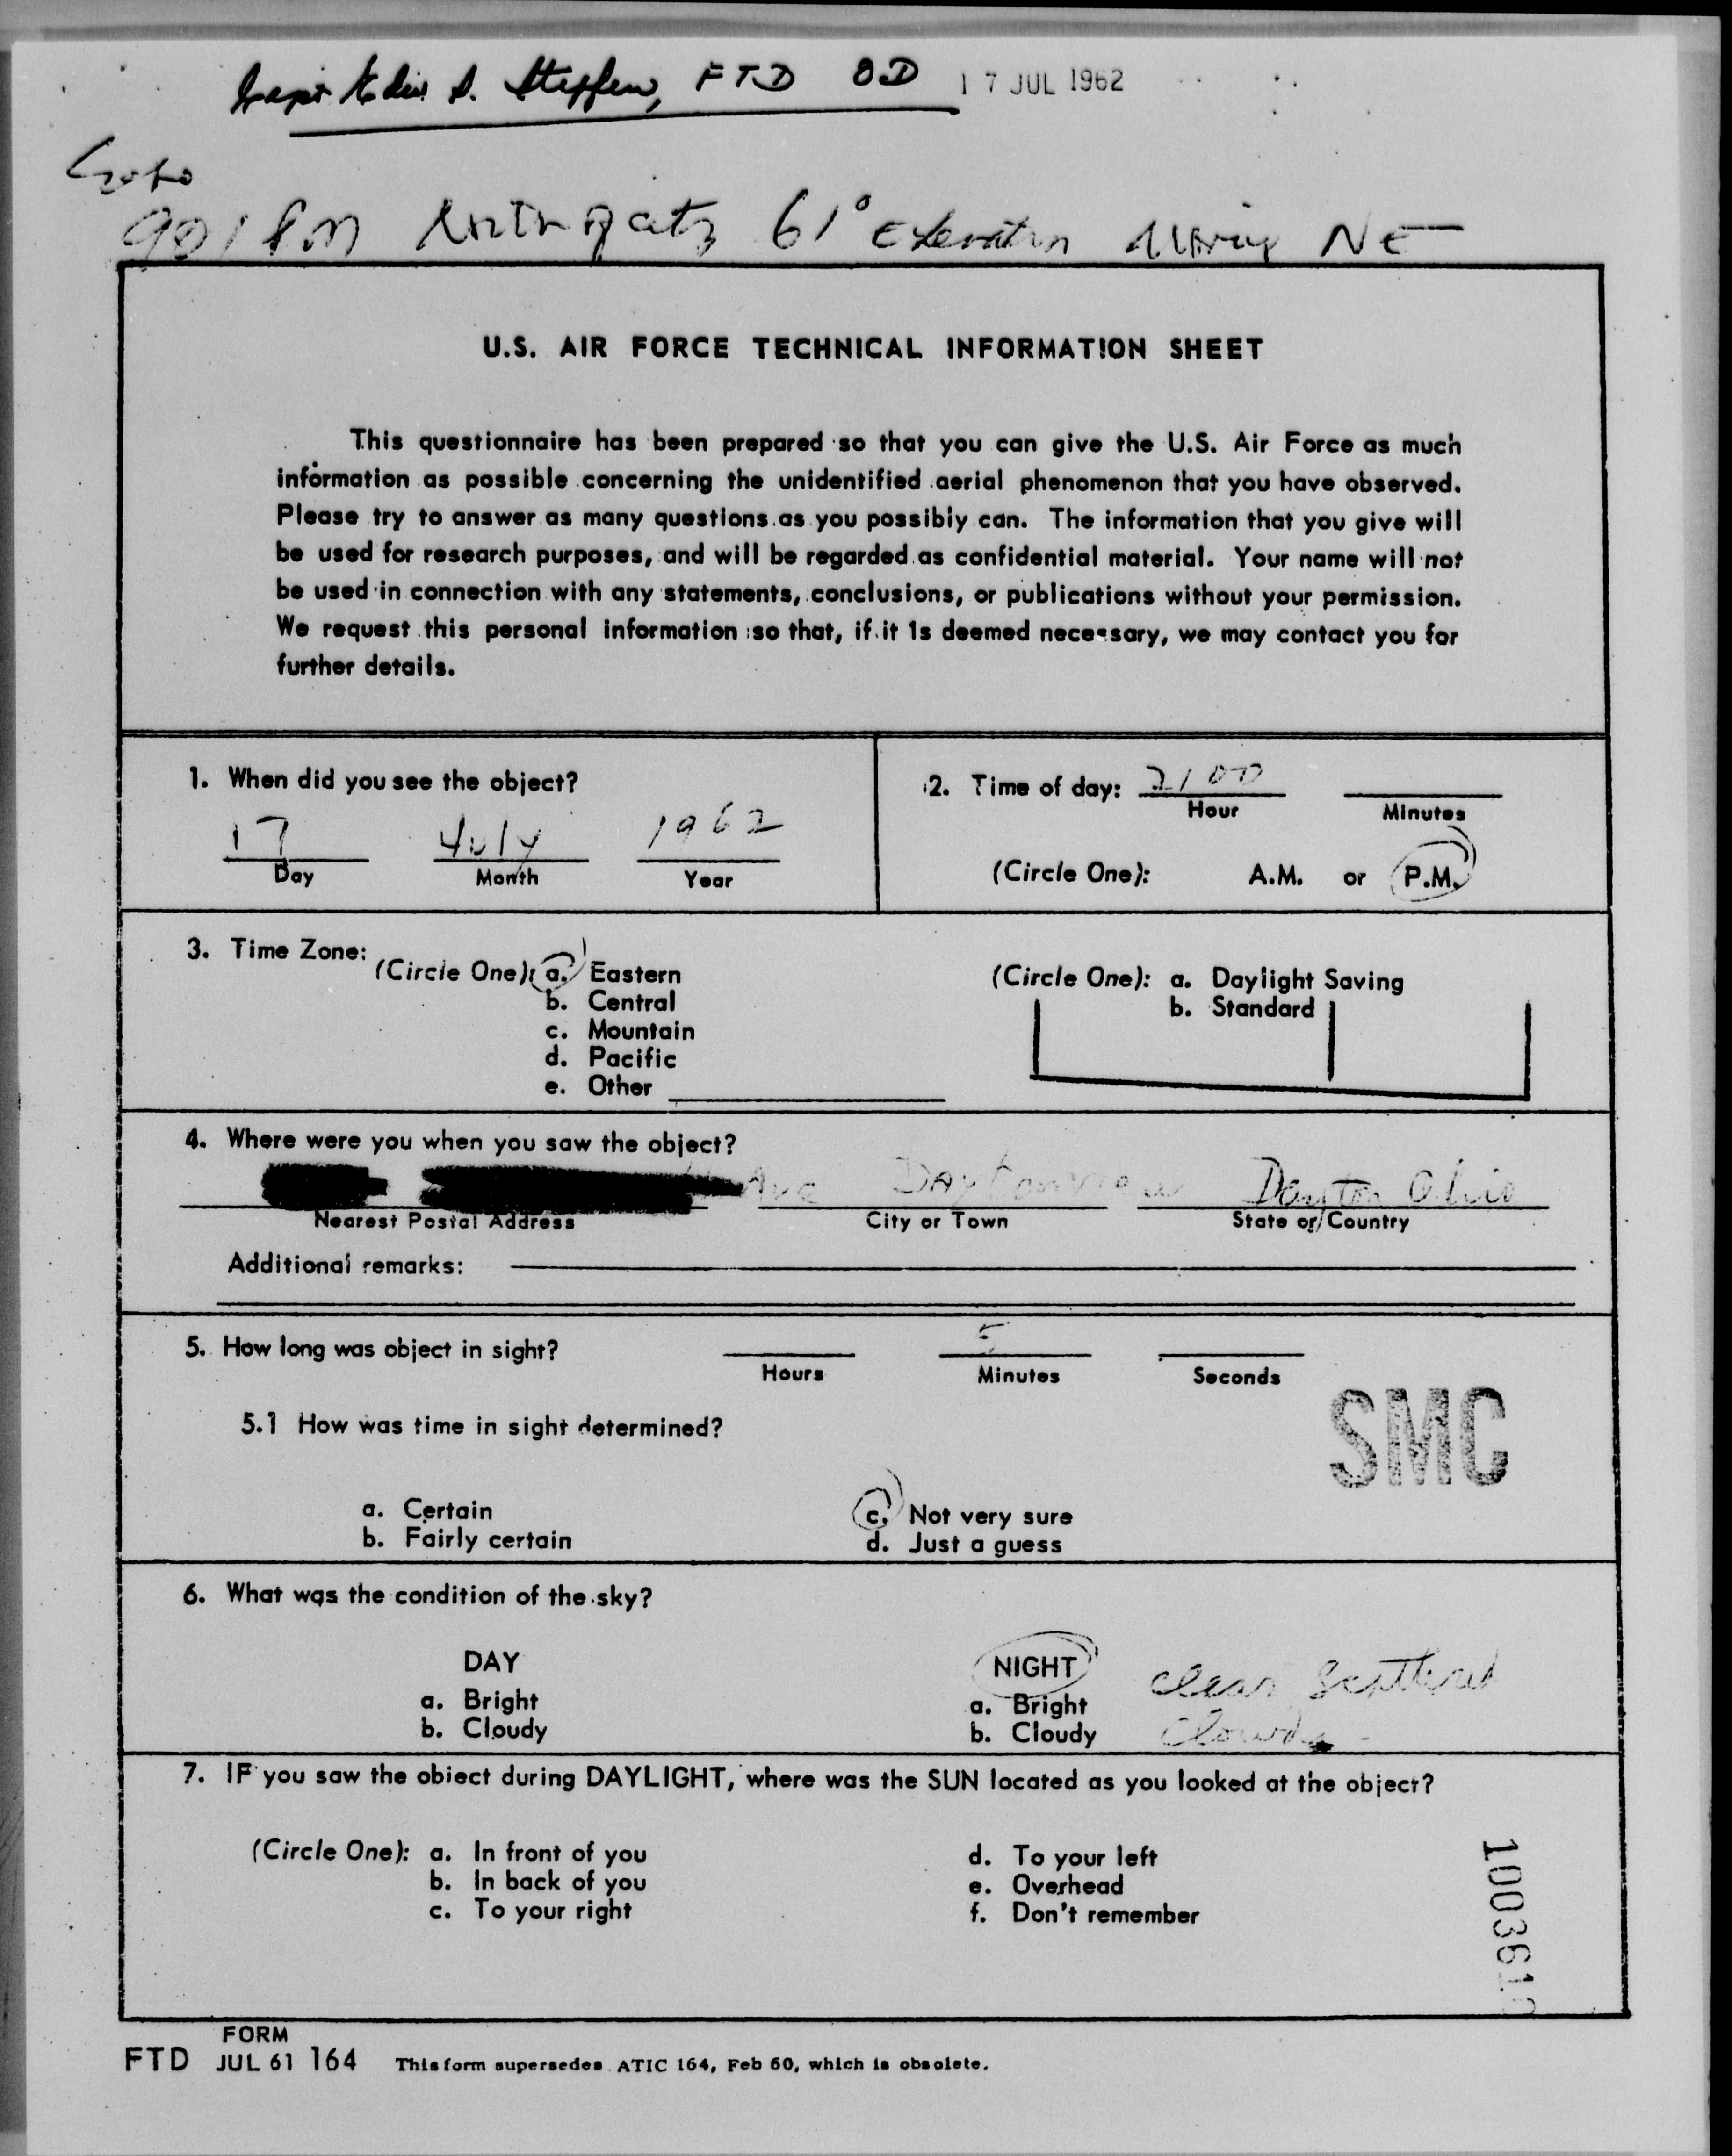 S. Steffen, FTD OD 17 JUL 1962
Echo
901 PM 61° Elevation Moving NE
U.S. AIR FORCE TECHNICAL INFORMATION SHEET
This questionnaire has been prepared so that you can give the U.S. Air Force as much
information as possible concerning the unidentified aerial phenomenon that you have observed.
Please try to answer as many questions as you possibly can. The information that you give will
be used for research purposes, and will be regarded as confidential material. Your name will not
be used in connection with any statements, conclusions, or publications without your permission.
We request this personal information so that, if it is deemed necessary, we may contact you for
further details.
1. When did you see the object?
17 July 1962
Day Month Year
2. Time of day: 2100
Hour Minutes
(Circle One): A.M. or P.M.
3. Time Zone:
(Circle One): a. Eastern
b. Central
c. Mountain
d. Pacific
e. Other
(Circle One): a. Daylight Saving
b. Standard
4. Where were you when you saw the object?
Ave Daytonview Dayton Ohio
Nearest Postal Address City or Town State or Country
Additional remarks:
5. How long was object in sight? 5
Hours Minutes Seconds
SMC
5.1 How was time in sight determined?
a. Certain
b. Fairly certain
c. Not very sure
d. Just a guess
6. What was the condition of the sky?
DAY
a. Bright
b. Cloudy
NIGHT
a. Bright
b. Cloudy
clear scattered
clouds
7. IF you saw the object during DAYLIGHT, where was the SUN located as you looked at the object?
(Circle One): a. In front of you
b. In back of you
c. To your right
d. To your left
e. Overhead
f. Don't remember
FORM
FTD JUL 61 164 This form supersedes ATIC 164, Feb 60, which is obsolete.